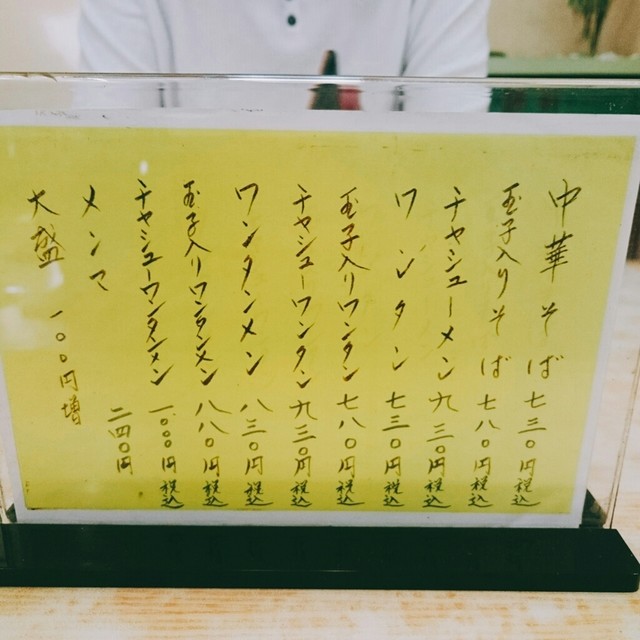 中華そば 七三〇円税込
玉子入りそば 七八〇円税込
チャシューメン 九三〇円税込
ワンタン 七三〇円税込
玉子入りワンタン 七八〇円税込
チャシューワンタン 九三〇円税込
ワンタンメン 八三〇円税込
玉子入りワンタンメン 八八〇円税込
チャシューワンタンメン 一、〇〇〇円税込
メンマ 二四〇円
大盛 一〇〇円増